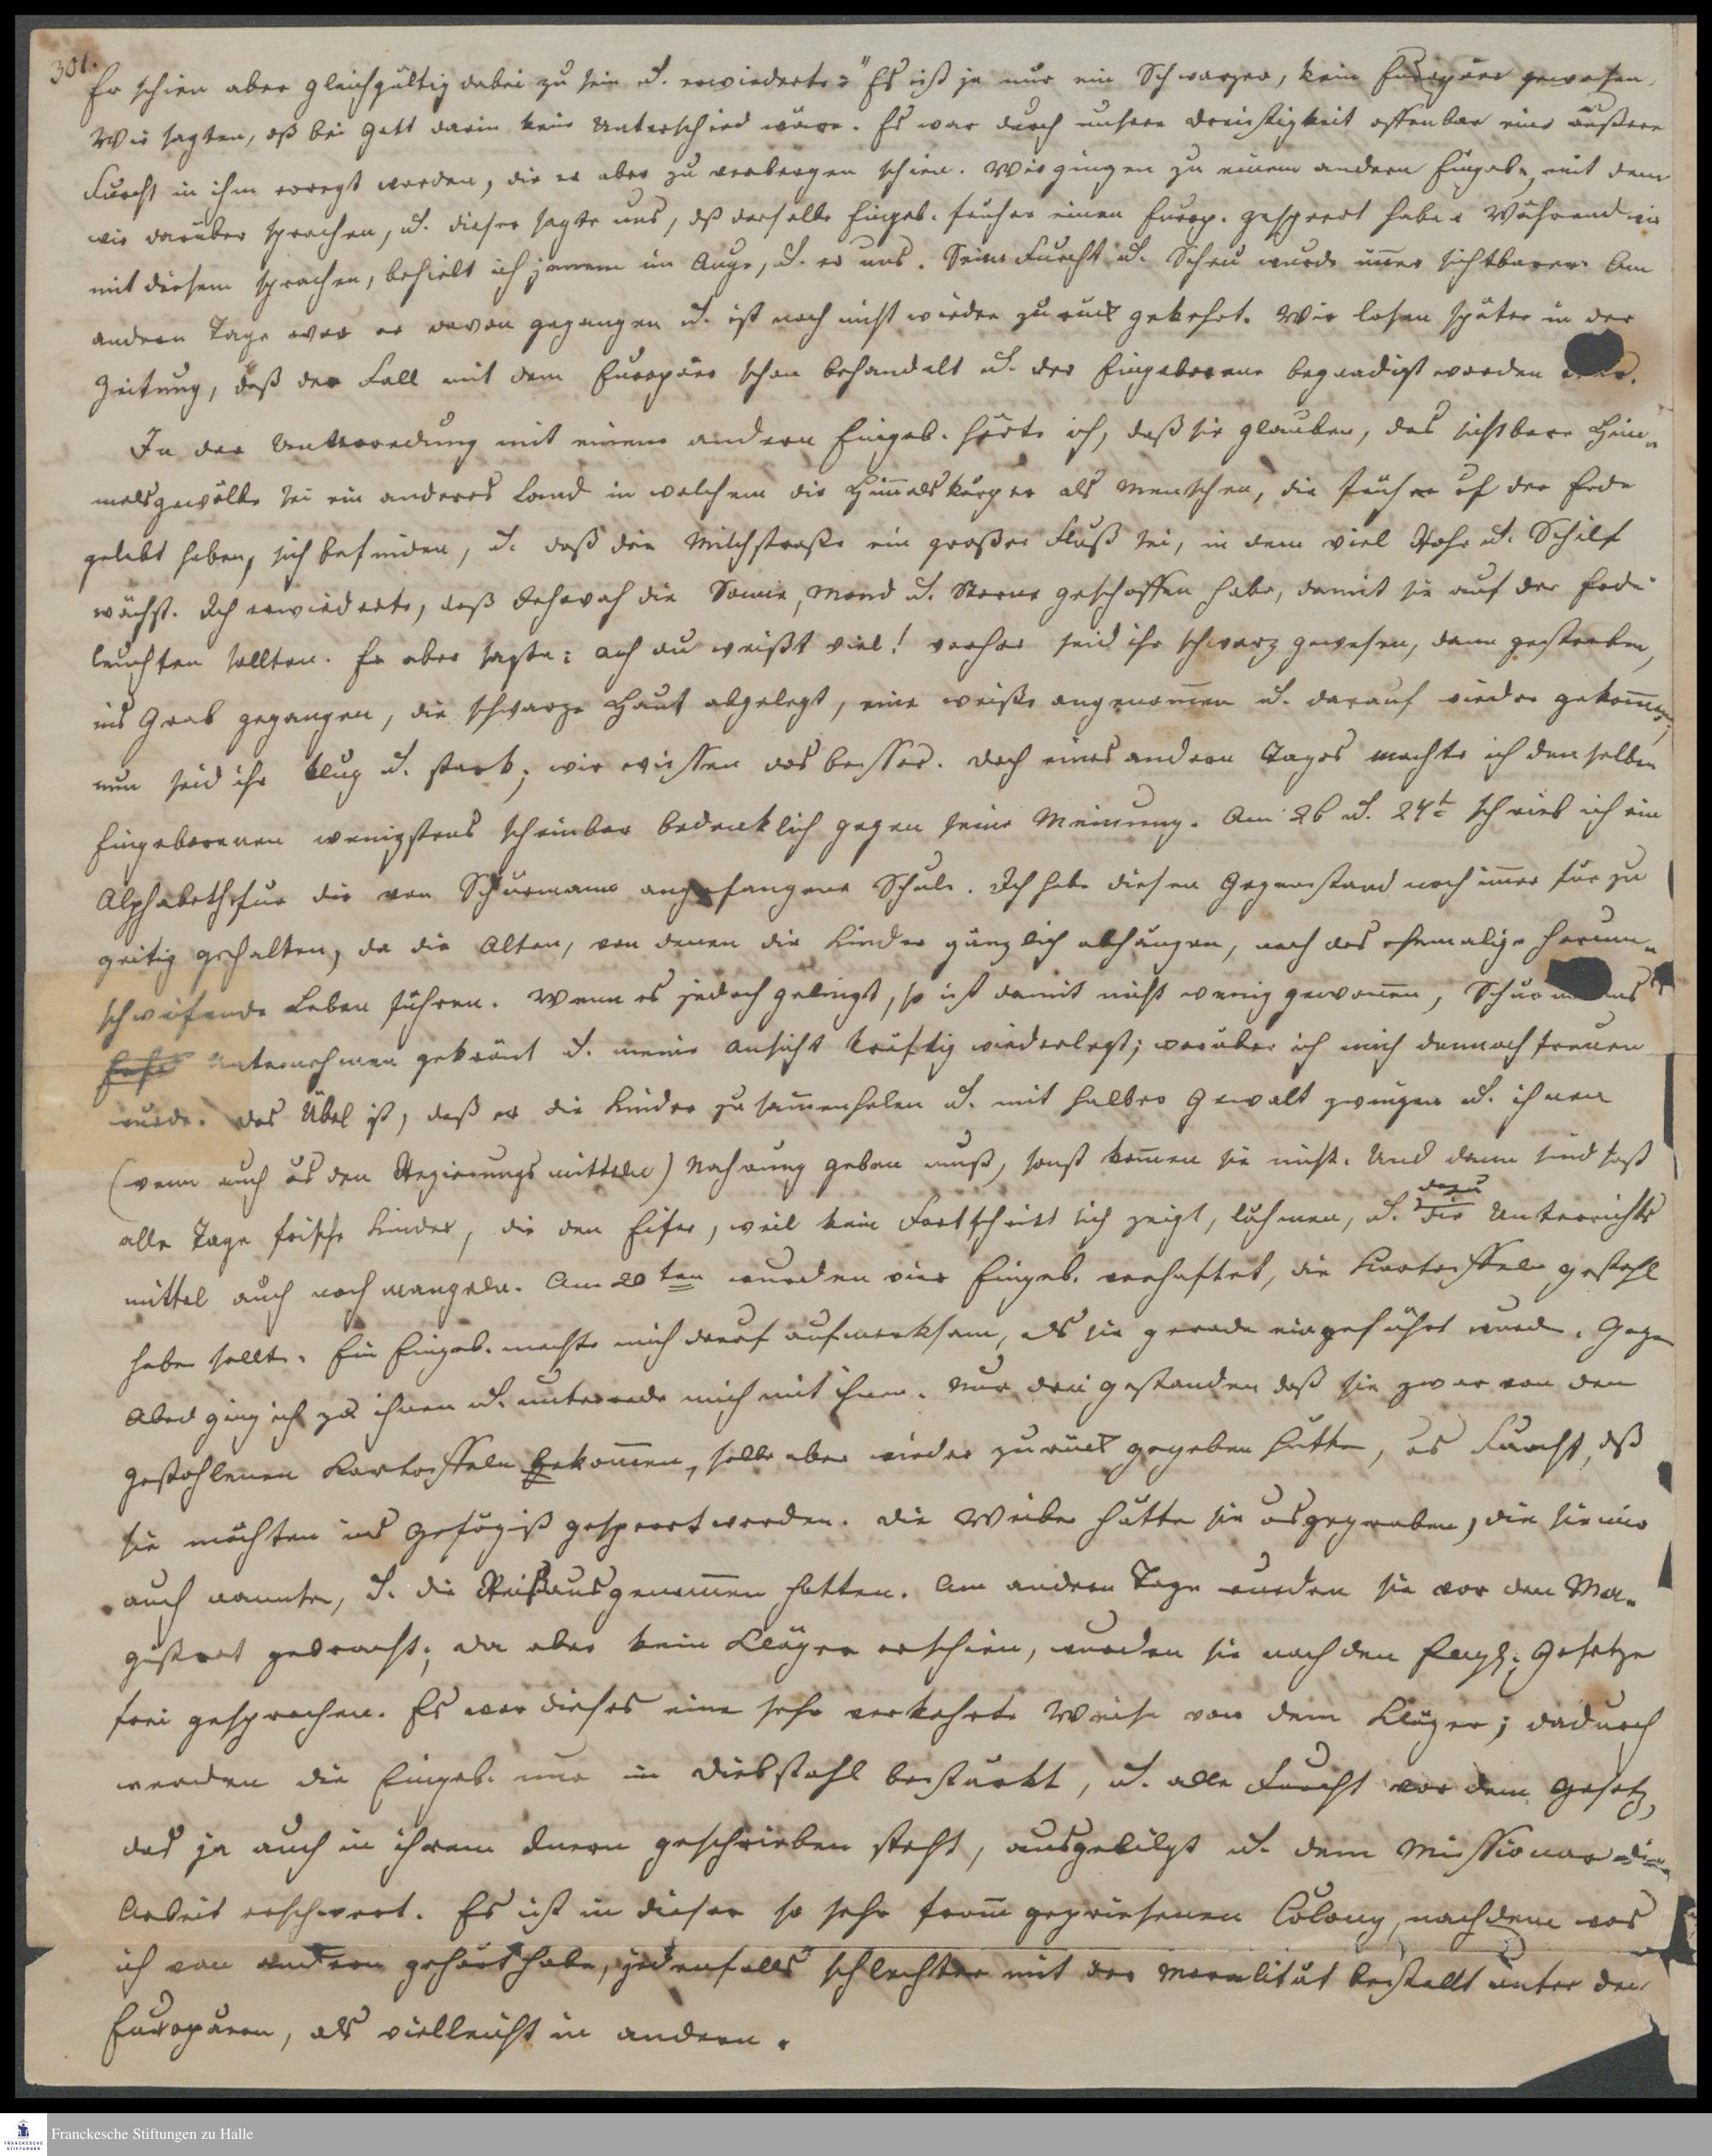 301.
Er schien aber gleichgültig dabei zu sein u. erwiederte: "Es ist ja nur ein Schwarzer, kein Europäer gewesen.
Wir sagten, dß bei Gott darin kein Unterschied wäre. Es war durch unsere Dreistigkeit offenbar eine äußere
Furcht in ihm erregt worden, die er aber zu verbergen schien. Wir gingen zu einem andern Eingeb., mit dem
wir darüber sprachen, u. dieser sagte uns, dß derselbe Eingeb. früher einen Europ. gespeert habe. Während wir
mit diesem sprachen, behielt ich jenem im Auge, u. er uns. Seine Furcht u. Scheu wurde im̅er sichtbarer. Am
andern Tage war er davon gegangen u. ist noch nicht wieder zurück gekehrt. Wir lasen später in der
Zeitung, daß der Fall mit dem Europäer schon behandelt u. der Eingeborene begnadigt worden
In der Unterredung mit einem andern Eingeb. hörte ich, daß sie glauben, das sichtbare Him-
melsgewölbe sei ein anderes Land in welchem die Him̅elskörper als Menschen, die früher uf der Erde
gelebt haben, sich befinden, u. daß die Milchstraße ein großer Fluß sei, in dem viel Rohr u. Schilf
wächst. Ich erwiederte, daß Jehovah die Sonne, Mond u. Sterne geschaffen habe, damit sie auf der Erde
leuchten sollten. Er aber sagte: ach du weißt viel! vorher seid ihr schwarz gewesen, dann gestorben,
ins Grab gegangen, die schwarze Haut abgelegt, eine weiße angenom̅en u. darauf wieder gekom̅en;
nun seid ihr klug u. stark; wir wissen das besser. Doch eines andern Tages machte ich denselben
Eingeborenen wenigstens scheinbar bedenklich gegen seine Meinung. Am 26 u. 27t schrieb ich ein
Alphabeth für die von Schürmann angefangene Schule. Ich habe diesen Gegenstand noch im̅er für zu
zeitig gehalten, da die Alten, von denen die Kinder gänzlich abhängen, noch das ehemalige herum-
schweifende Leben führen. Wenn es jedoch gelingt, so ist damit nicht wenig gewon̅en, Schürmanns
Unternehmen gekrönt u. meine Ansicht kräftig wiederlegt; worüber ich mich dennoch freuen
würde. Das Übel ist, daß er die Kinder zusam̅enholen u. mit halber Gewalt zwingen u. ihnen
(wenn auch us den Regierungsmitteln) Nahrung geben muß, sonst kom̅en sie nicht. Und dann sind fast
alle Tage frische Kinder, die den Eifer, weil kein Fortschritt sich zeigt, lähmen, u. dazu die Unterrichts
mittel auch noch mangeln. Am 20ten wurden vier Eingeb. verhaftet, die Kartoffeln gestohl
haben sollte. Ein Eingeb. machte mich drauf aufmerksam, als sie gerade eingeführt wurde. Gegen
Abed ging ich zu ihnen u. unterrede mich mit ihnen. Nur drei gestanden daß sie zwar von den
gestohlenen Kartoffeln bekom̅en, selbe aber wieder zurück gegeben hätte, us Furcht, dß
sie möchten ins Gefägniß gesperrt werden. Die Weiber hätte sie usgegraben, die sie mir
auch nannte, u. die Reißaus genom̅en hatten. Am andern Tage wurden sie vor den Ma-
gistrat gebracht; da aber kein Kläger erschien, wurden sie nach den Engl. Gesetze
frei gesprochen. Es war dieses eine sehr verkehrte Weise von dem Kläger; dadurch
werden die Eingeb. nur in Diebstahl bestärkt, u. alle Furcht vor dem Gesetz,
das ja auch in ihrem Inern geschrieben steht, ausgetilgt u. dem Missionar die
Arbeit erschwert. Es ist in dieser so sehr from̅ gepriesenen Colony, nachdem was
ich von andern gehört habe, jedenfalls schlechter mit der Moralität bestellt unter den
Europäern, als vielleicht in andern.
Franckesche Stiftungen zu Halle